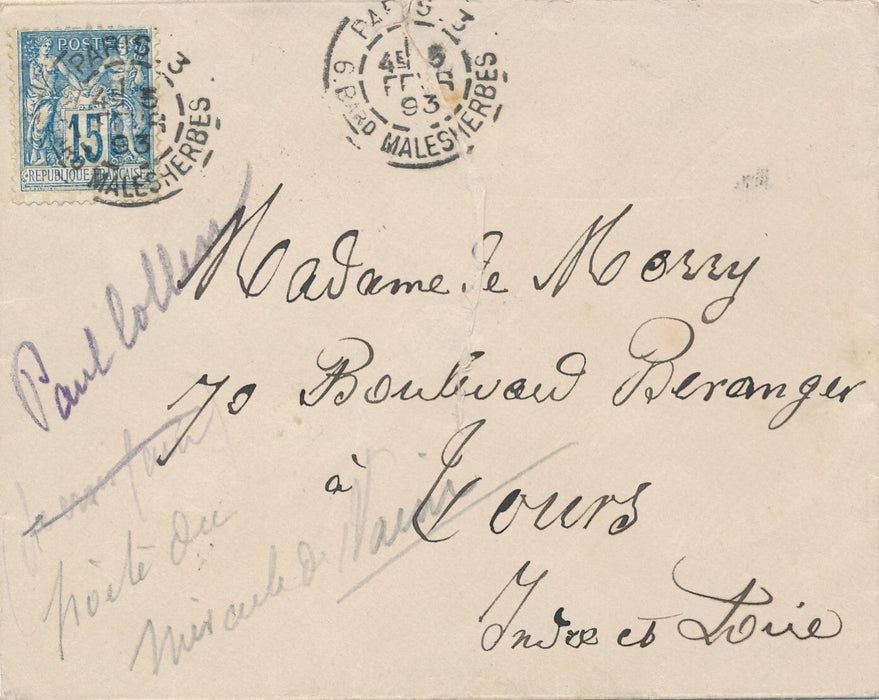 POSTES
15
REPUBLIQUE FRANÇAISE
PARIS 13
93
MALESHERBES
PARIS 13
4E 5
FEVR
93
6. BARD MALESHERBES
Madame de Morry
70 Boulevard Beranger
à Tours
Indre et Loire
Paul
poëte du
miracle de